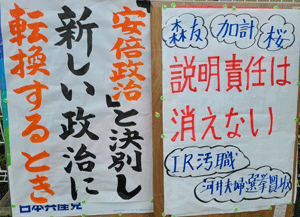 「安倍政治」と決別し
新しい政治に
転換するとき
日本共産党
森友
加計
桜
説明責任は
消えない
IR汚職
河井夫婦選挙買収